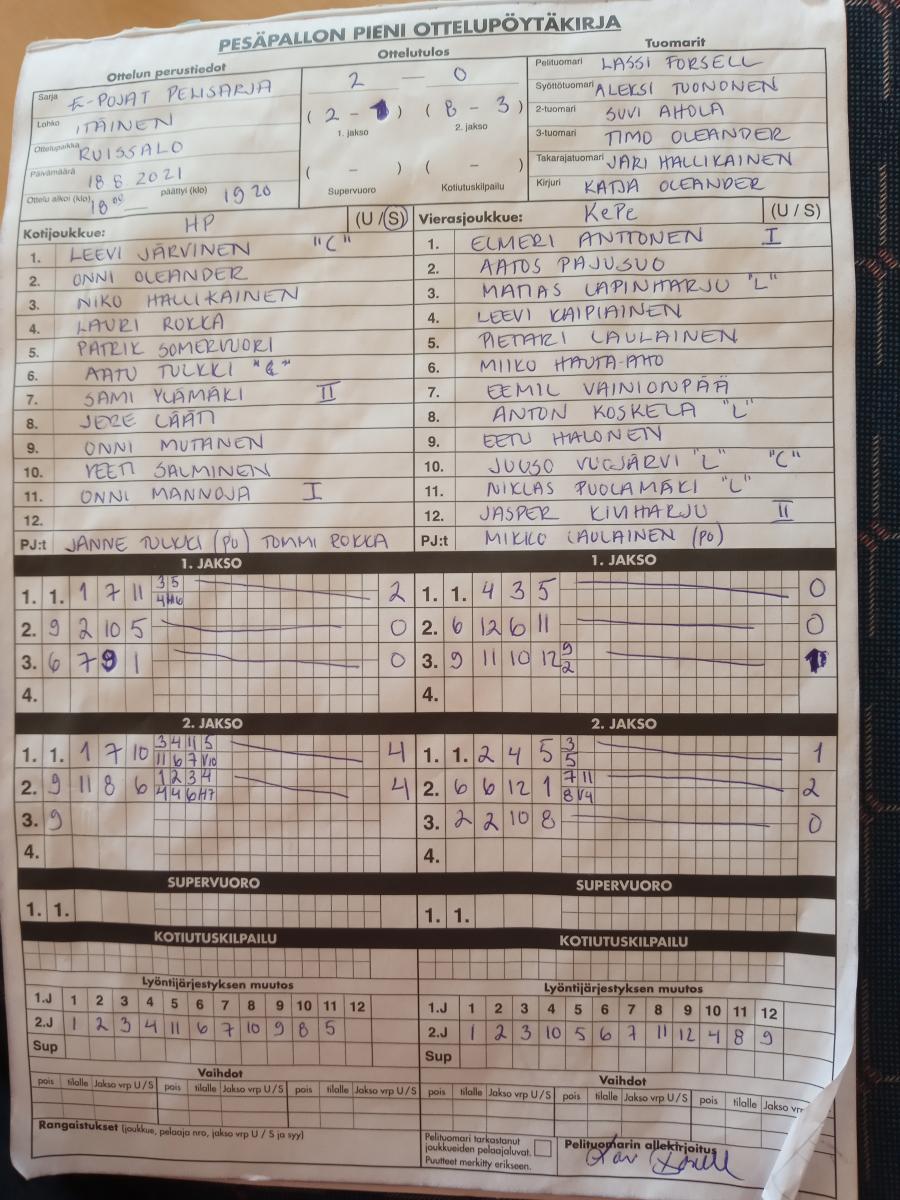 PESÄPALLON PIENI OTTELUPÖYTÄKIRJA
Ottelun perustiedot
Sarja E-POJAT PELISARJA
Lohko ITÄINEN
Ottelupaikka RUISSALO
Päivämäärä 18 8 2021
Ottelu alkoi (klo) 18 00 päättyi (klo) 19 20
Ottelutulos
2 — 0
( 2 - 1 ) ( 8 - 3 )
1. jakso 2. jakso
( - ) ( - )
Supervuoro Kotiutuskilpailu
Tuomarit
Pelituomari LASSI FORSELL
Syöttötuomari ALEKSI TUONONEN
2-tuomari SUVI AHOLA
3-tuomari TIMO OLEANDER
Takarajatuomari JARI HALLIKAINEN
Kirjuri KATJA OLEANDER
Kotijoukkue: HP (U / S)
1. LEEVI JÄRVINEN "C"
2. ONNI OLEANDER
3. NIKO HALLIKAINEN
4. LAURI ROKKA
5. PATRIK SOMERVUORI
6. AATU TULKKI
7. SAMI YLÄMÄKI II
8. JERE LÄÄTI
9. ONNI MUTANEN
10. VEETI SALMINEN
11. ONNI MANNOJA I
12.
PJ:t JANNE TULKKI (PU) TOMMI ROKKA
Vierasjoukkue: KePe (U / S)
1. ELMERI ANTTONEN I
2. AATOS PAJUSUO
3. MATIAS LAPINHARJU "L"
4. LEEVI KAIPIAINEN
5. PIETARI LAULAINEN
6. MIIKO HAUTA-AHO
7. EEMIL VAINIONPÄÄ
8. ANTON KOSKELA "L"
9. EETU HALONEN
10. JUUSO VUOJÄRVI "L" "C"
11. NIKLAS PUOLAMÄKI "L"
12. JASPER KIVIHARJU II
PJ:t MIKKO LAULAINEN (PU)
1. JAKSO
1. 1. 1 7 11 3 5 2
2. 9 2 10 5 0
3. 6 7 9 1 0
4.
1. JAKSO
1. 1. 4 3 5 0
2. 6 12 6 11 0
3. 9 11 10 12 9 2 1
4.
2. JAKSO
1. 1. 1 7 10 3 4 11 5 4
11 6 7 V10
2. 9 11 8 6 1 2 3 4 4
4 4 6 H7
3. 9
4.
2. JAKSO
1. 1. 2 4 5 3 5 1
2. 6 6 12 1 7 11 2
8 V4
3. 2 2 10 8 0
4.
SUPERVUORO
1. 1.
SUPERVUORO
1. 1.
KOTIUTUSKILPAILU
KOTIUTUSKILPAILU
Lyöntijärjestyksen muutos
1.J 1 2 3 4 5 6 7 8 9 10 11 12
2.J 1 2 3 4 11 6 7 10 9 8 5
Sup
Lyöntijärjestyksen muutos
1.J 1 2 3 4 5 6 7 8 9 10 11 12
2.J 1 2 3 10 5 6 7 11 12 4 8 9
Sup
Vaihdot
pois tilalle Jakso vrp U / S pois tilalle Jakso vrp U / S pois tilalle Jakso vrp U / S
Vaihdot
pois tilalle Jakso vrp U / S pois tilalle Jakso vrp U / S pois tilalle Jakso vrp
Rangaistukset (joukkue, pelaaja nro, jakso vrp U / S ja syy)
Pelituomari tarkastanut
joukkueiden pelaajaluvat.
Puutteet merkitty erikseen.
Pelituomarin allekirjoitus